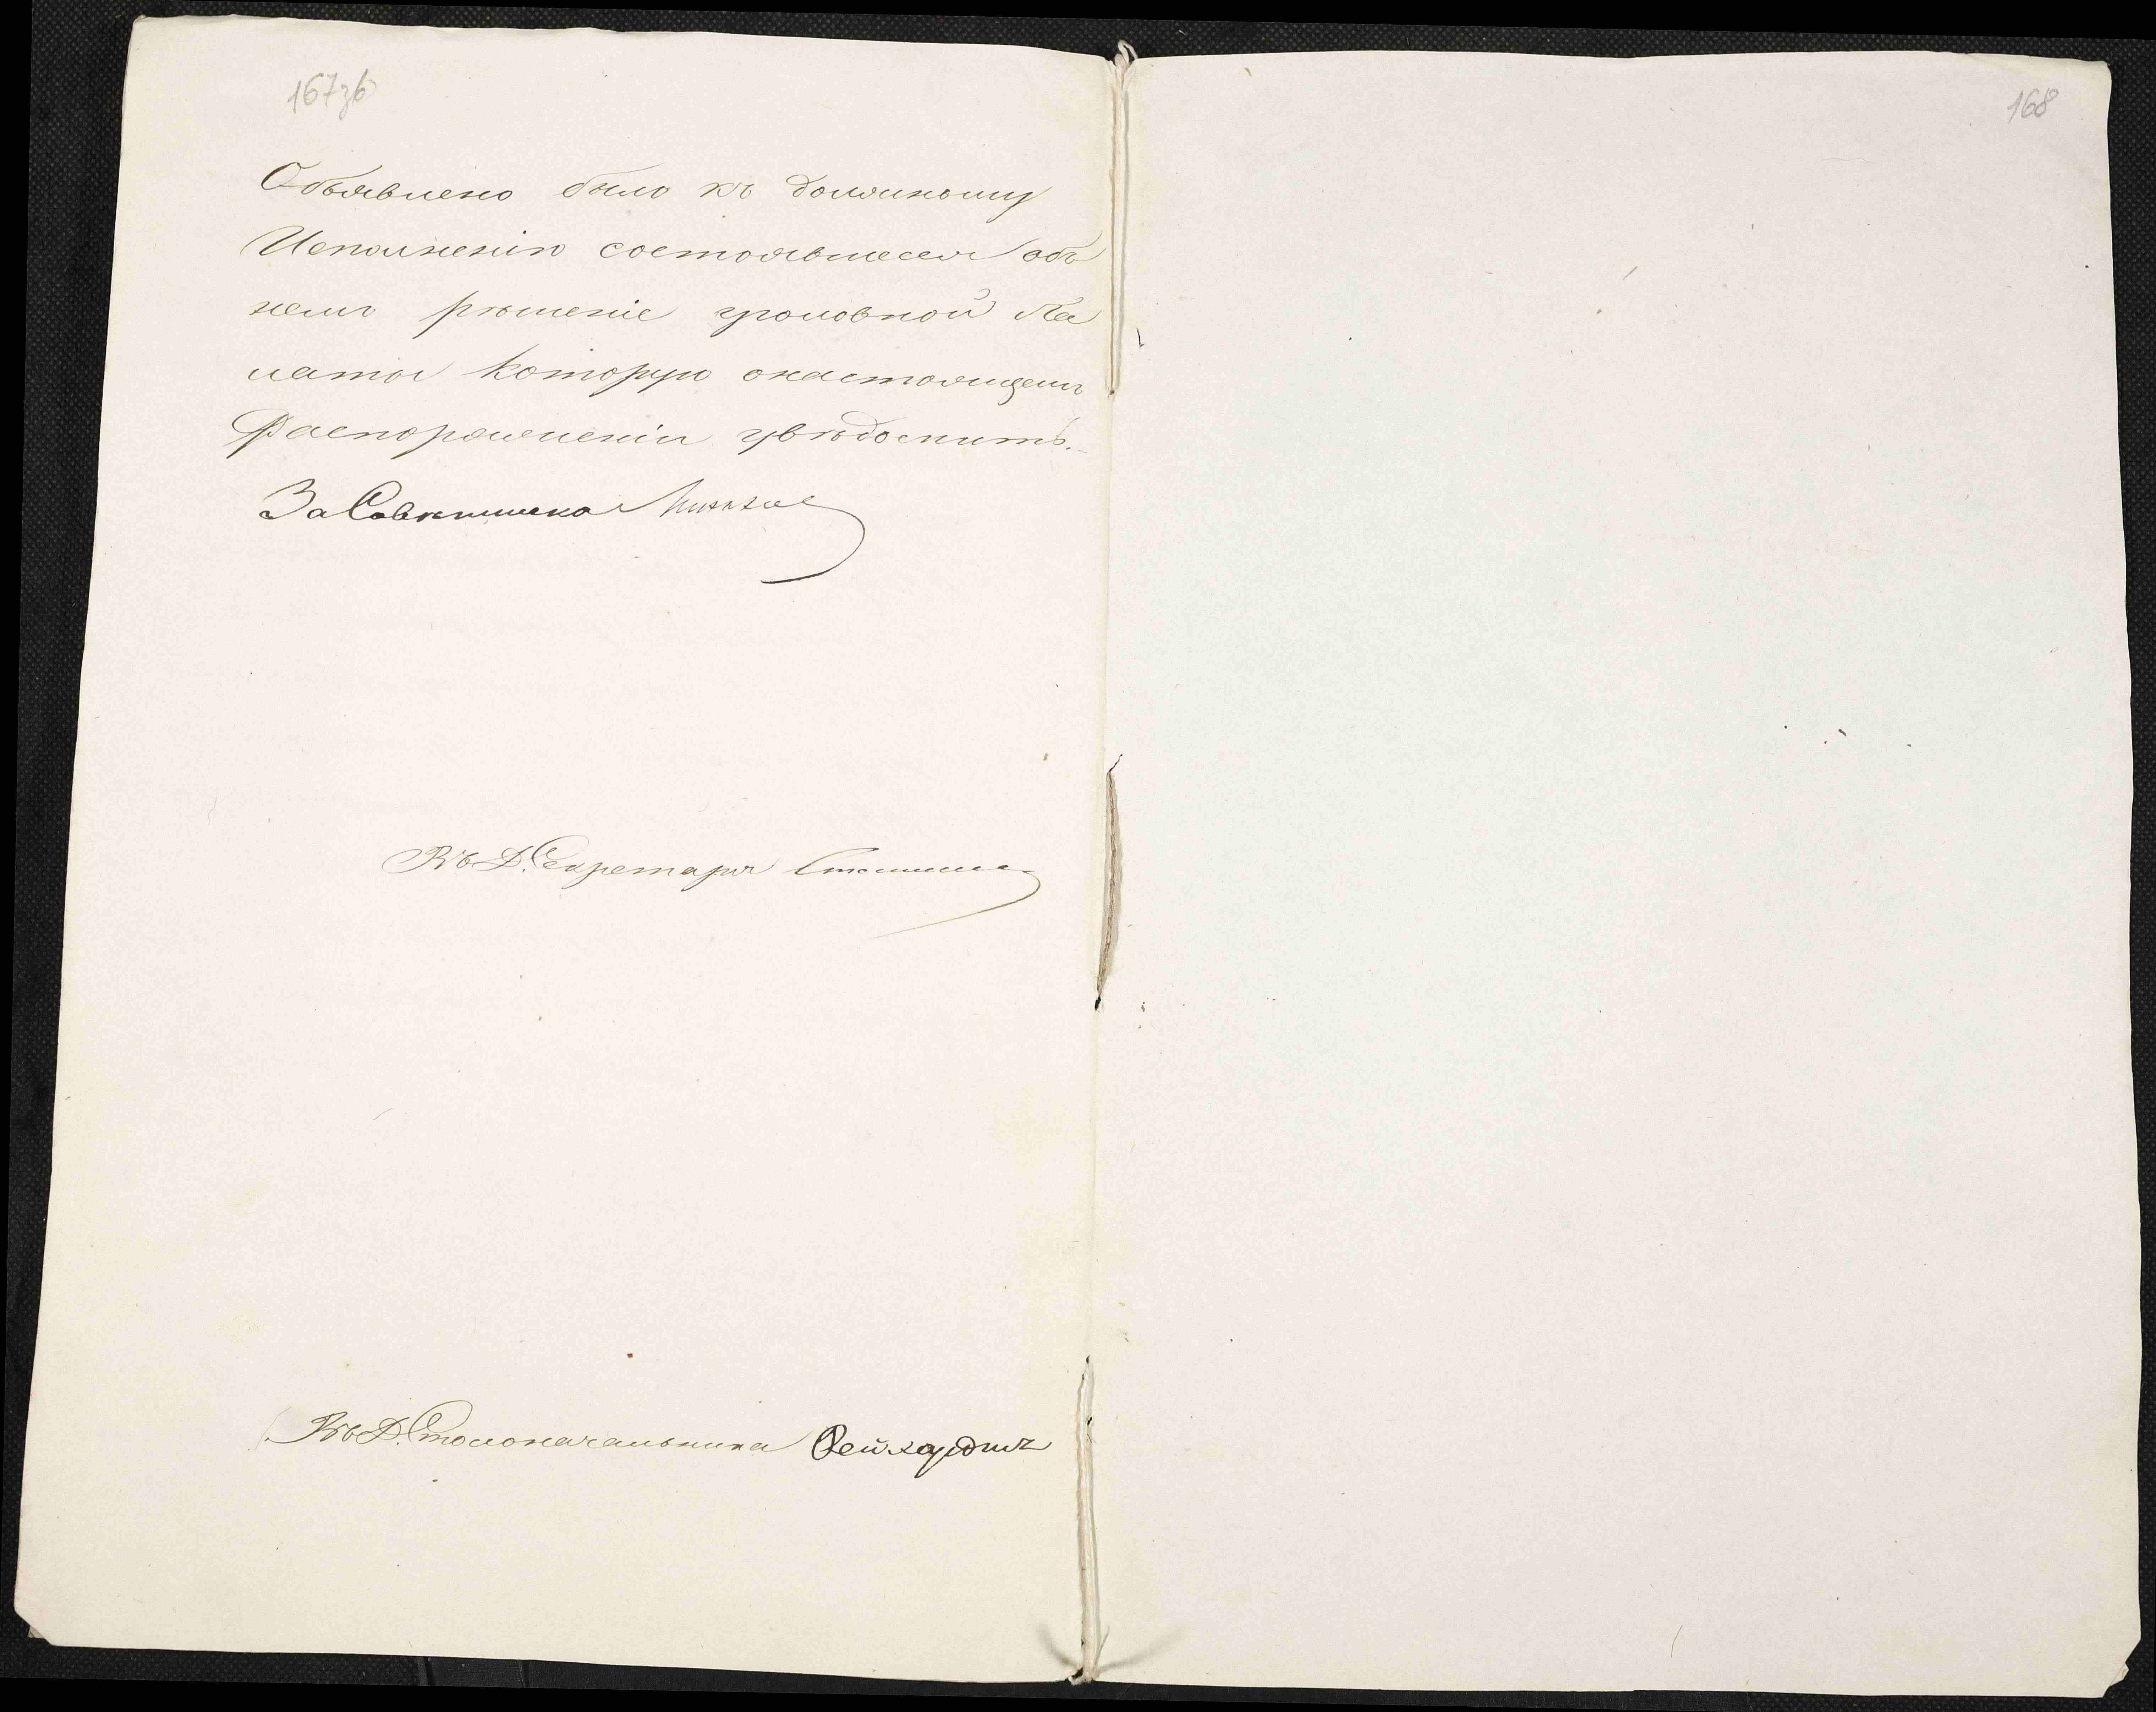 167зб
168
Объявлено было къ должному
Исполненію состоявшееся объ
немъ рѣшеніе уголовной Па
латы которую онастоящемъ
Распоряженіи увѣдомить.
За Совѣтника
Въ Д. Секретаря
Въ Д. Столоначальника